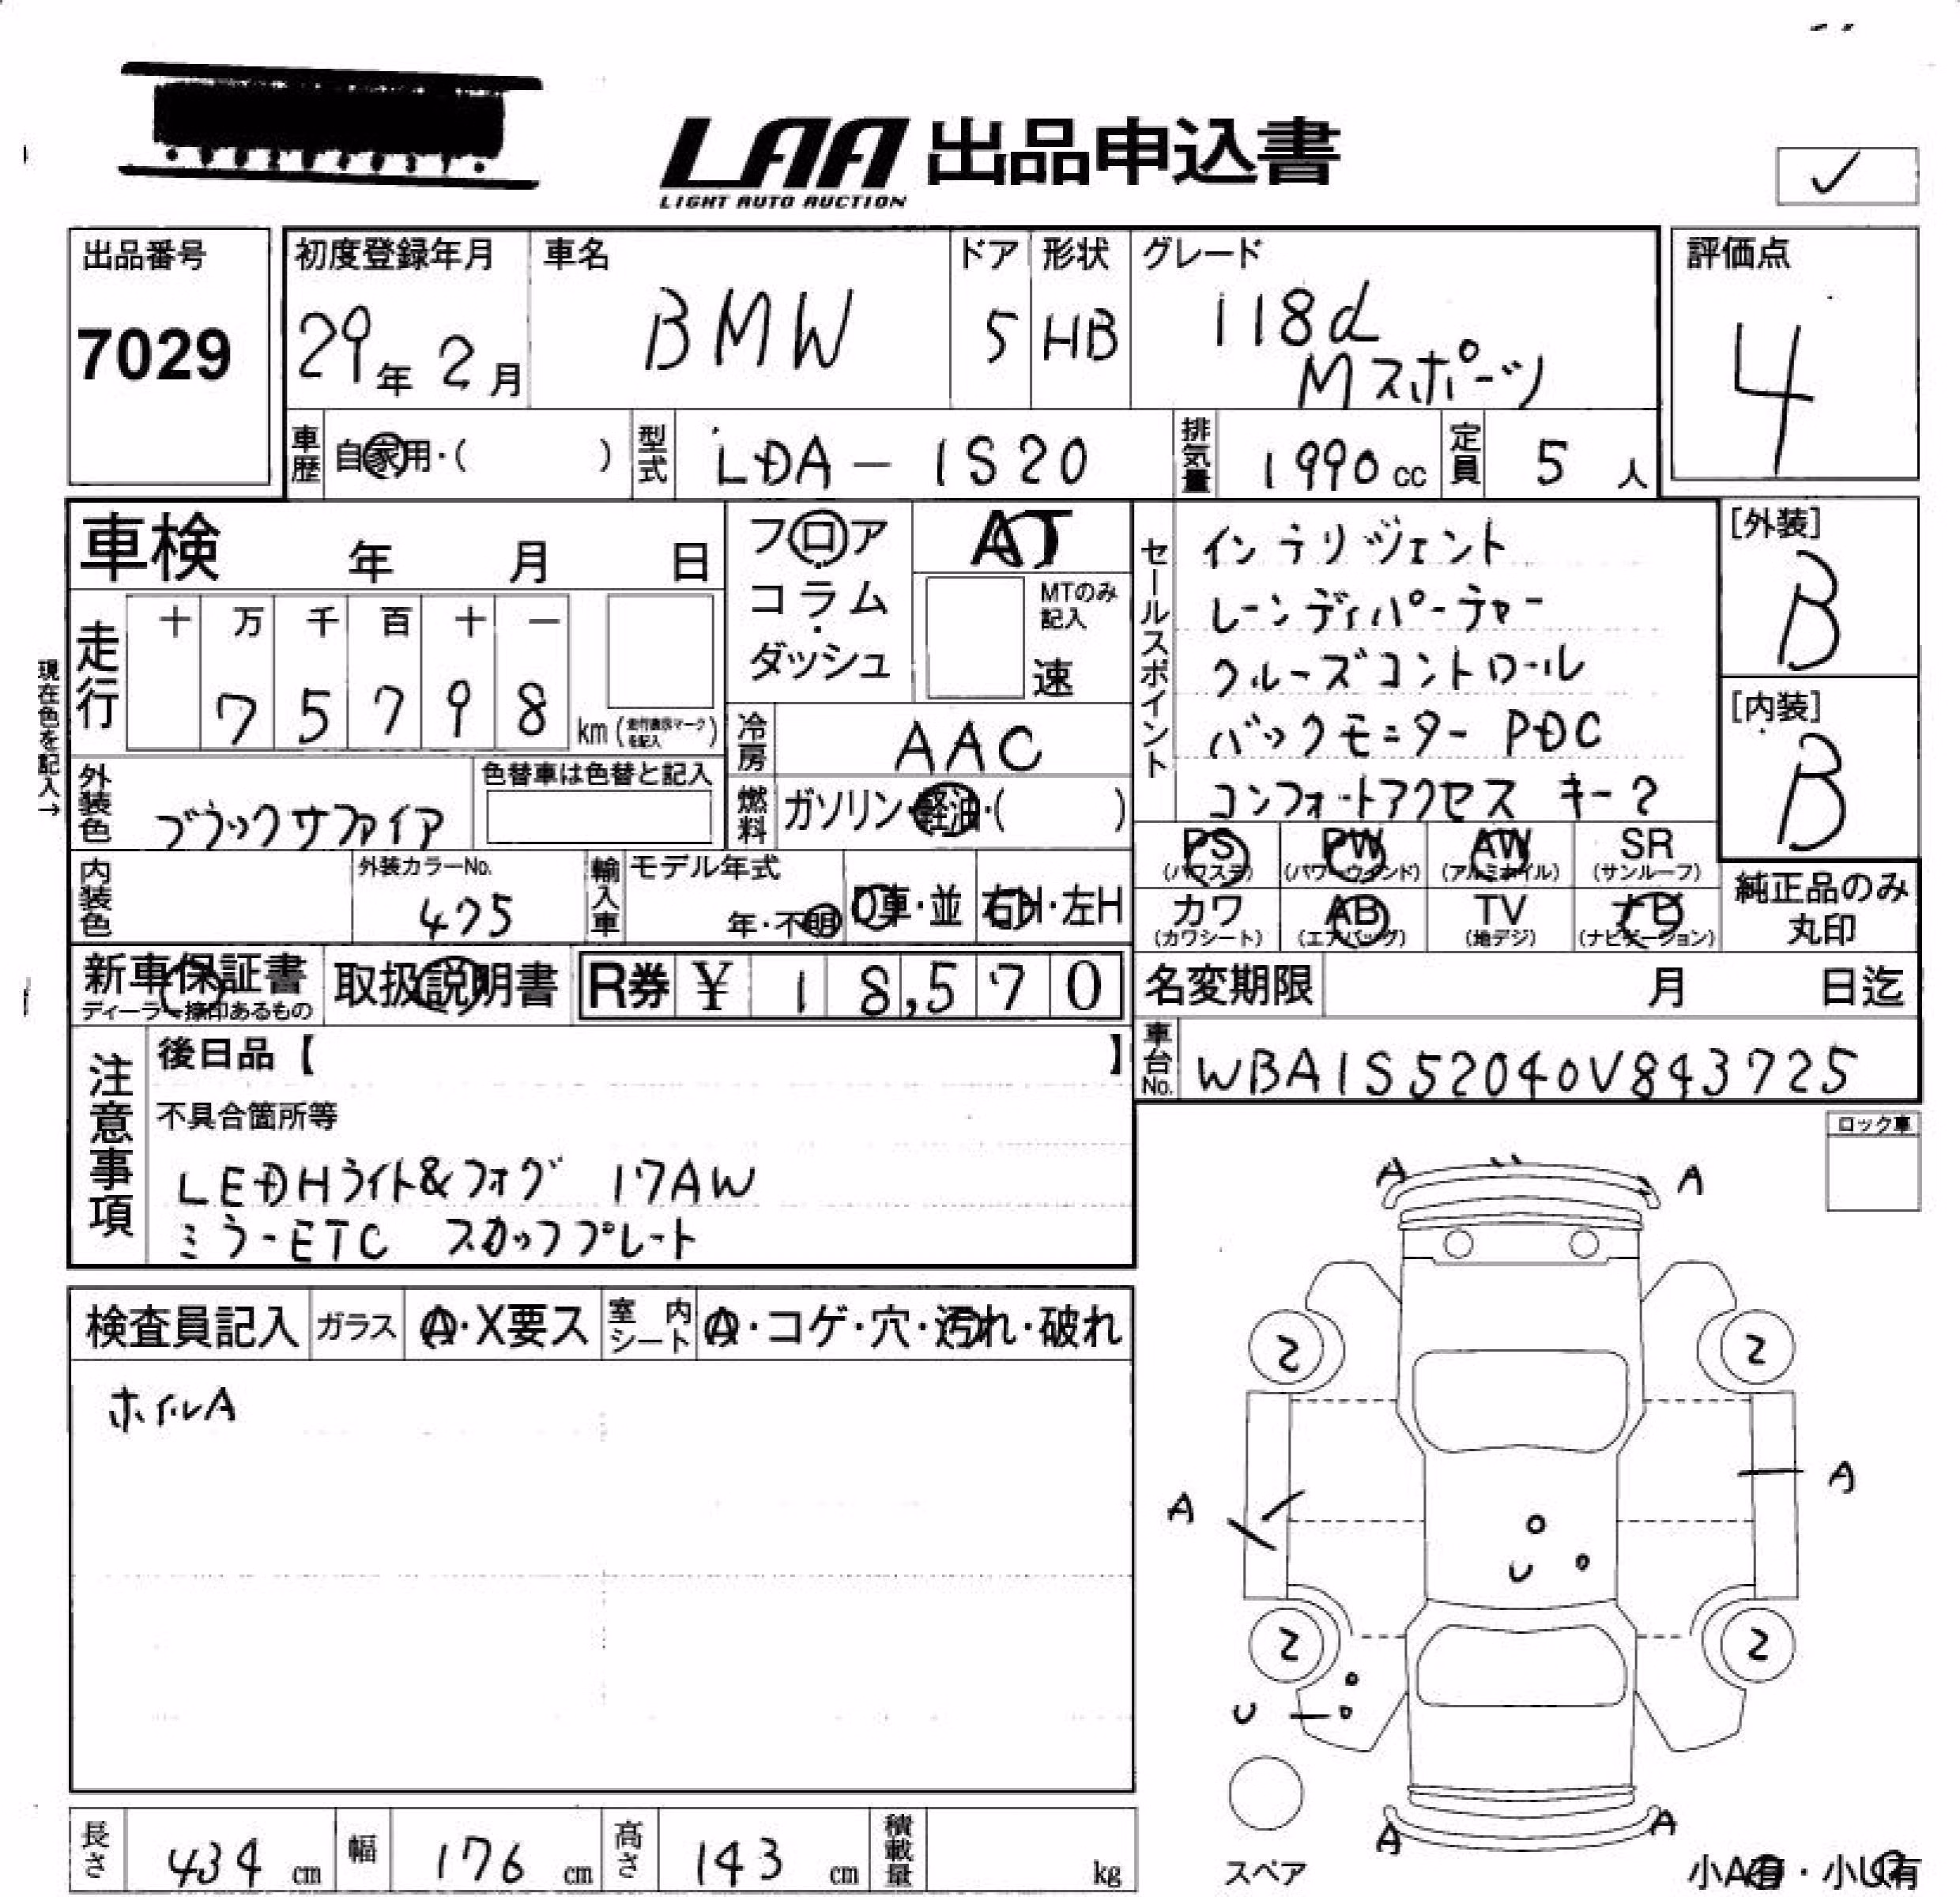 LAA 出品申込書
LIGHT AUTO AUCTION
✓
出品番号
7029
初度登録年月
29年 2月
車名
BMW
ドア
5
形状
HB
グレード
118d
Mスポーツ
評価点
4
車歴 自家用・( )
型式 LDA - 1S20
排気量 1990 cc
定員 5 人
車検 年 月 日
フロア
コラム
・
ダッシュ
AT
MTのみ
記入
速
セールスポイント
インテリジェント
レーンディパーチャー
クルーズコントロール
バックモニター PDC
コンフォートアクセス キー2
[外装]
B
[内装]
B
現在色を記入→
走行
十 万 千 百 十 一
7 5 7 9 8
km (走行表示マークを記入)
冷房 AAC
燃料 ガソリン・軽油・( )
外装色
ブラックサファイア
色替車は色替と記入
内装色
外装カラーNo.
475
輸入車
モデル年式
年・不明
D車・並
右H・左H
PS
(パワステ)
PW
(パワーウインド)
AW
(アルミホイル)
SR
(サンルーフ)
カワ
(カワシート)
AB
(エアバッグ)
TV
(地デジ)
ナビ
(ナビゲーション)
純正品のみ
丸印
新車保証書
ディーラー捺印あるもの
取扱説明書
R券 ¥ 18,570
名変期限 月 日迄
車台No. WBA1S52040V843725
注意事項
後日品【 】
不具合箇所等
LEDHライト&フォグ 17AW
ミラーETC スカッフプレート
ロック車
検査員記入
ガラス A・X要ス
室内シート A・コゲ・穴・汚れ・破れ
ホイルA
A A
2 2
A A
U
2 2
U
A A
スペア
小A有・小U有
長さ 434 cm
幅 176 cm
高さ 143 cm
積載量 kg